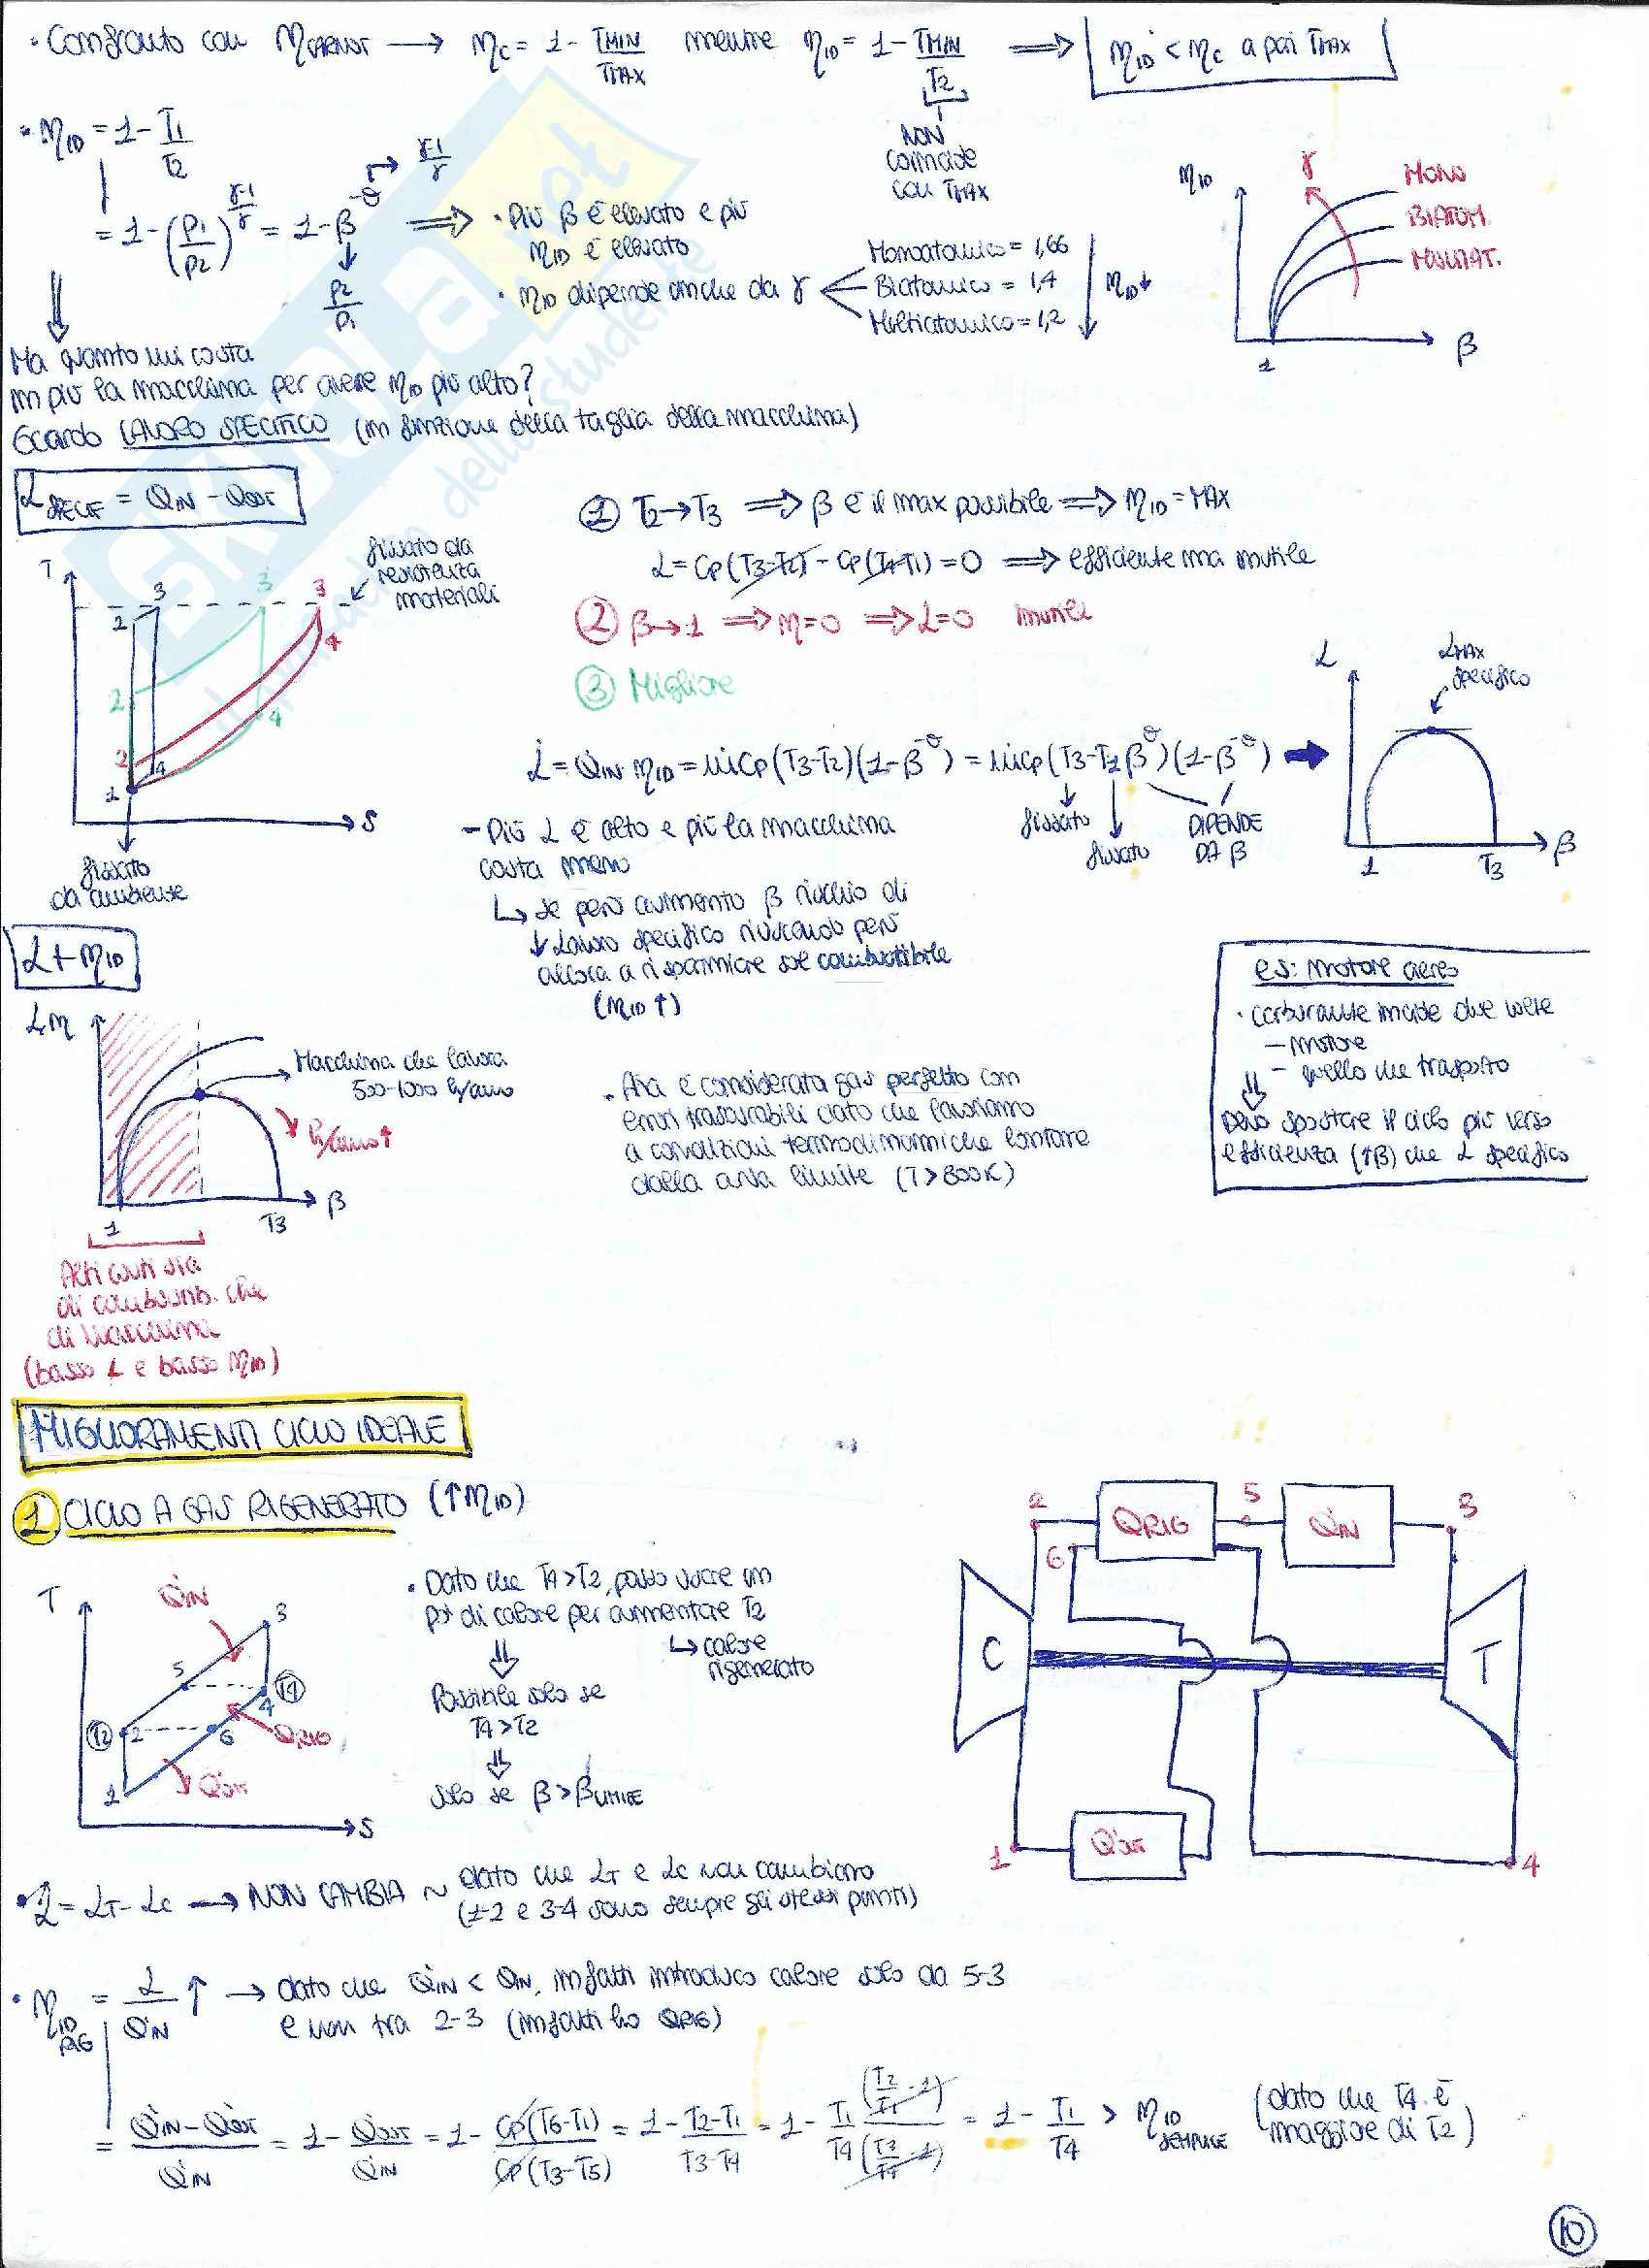 • Confronto con ηCARNOT → ηC = 1 - TMIN/TMAX mentre ηID = 1 - TMIN/T2 ⇒ ηID < ηC a pari TMAX
NON
coincide
con TMAX
• ηID = 1 - T1/T2
= 1 - (P1/P2)^(γ-1/γ) = 1 - β^-θ ⇒ • Più β è elevato e più
ηID è elevato
θ → γ-1/γ
β → P2/P1
• ηID dipende anche da γ
Monoatomico = 1,66
Biatomico = 1,4
Multiatomico = 1,2
ηID ↓
ηID
γ
MONO
BIATOM.
MULTIAT.
1
β
Ma quanto mi costa
in più la macchina per avere ηID più alto?
Guardo LAVORO SPECIFICO (in funzione della taglia della macchina)
LSPECIF = QIN - QOUT
T
fissato da
resistenza
materiali
3 3 3
2
4
2
4
2
4
1
S
fissato
da ambiente
① T2 → T3 ⇒ β è il max possibile ⇒ ηID = MAX
L = Cp(T3-T2) - Cp(T4-T1) = 0 ⇒ efficiente ma inutile
② β → 1 ⇒ η = 0 ⇒ L = 0 inutile
③ Migliore
L̇ = Q̇IN · ηID = ṁCp(T3-T2)(1-β^-θ) = ṁCp(T3-T1β^θ)(1-β^-θ)
fissato
fissato
DIPENDE
DA β
L
LMAX
specifico
1
T3
β
- Più L è alto e più la macchina
costa meno
↳ se però aumento β rischio di
↓ Lavoro specifico riuscendo però
allora a risparmiare sul combustibile
(ηID ↑)
L + ηID
L, η
Macchina che lavora
500-1000 h/anno
h/anno ↑
1
T3
β
Alti costi sia
di combustib. che
di macchina
(basso L e basso ηID)
• Aria è considerata gas perfetto con
errori trascurabili dato che lavoriamo
a condizioni termodinamiche lontane
dalla curva limite (T > 800K)
es: motore aereo
• carburante incide due volte
- motore
- quello che trasporto
⇓
Devo spostare il ciclo più verso
efficienza (↑β) che L specifico
MIGLIORAMENTI CICLO IDEALE
① CICLO A GAS RIGENERATO (↑ηID)
T
Q'IN
3
5
T4
4
T2
2
6
QRIG
Q'OUT
1
S
• Dato che T4 > T2, posso usare un
po' di calore per aumentare T2
↳ calore
rigenerato
⇓
Possibile solo se
T4 > T2
⇓
solo se β > βLIMITE
2
QRIG
5
Q'IN
3
6
C
T
1
Q'OUT
4
• L = LT - LC → NON CAMBIA ~ dato che LT e LC non cambiano
(1-2 e 3-4 sono sempre gli stessi punti)
• ηID RIG = L/Q'IN ↑ → dato che Q'IN < QIN, infatti introduco calore solo da 5-3
e non tra 2-3 (infatti ho QRIG)
= Q'IN - Q'OUT / Q'IN = 1 - Q'OUT/Q'IN = 1 - Cp(T6-T1)/Cp(T3-T5) = 1 - T2-T1/T3-T4 = 1 - T1/T4 (T2/T1 - 1)/(T3/T4 - 1) = 1 - T1/T4 > ηID SEMPLICE (dato che T4 è
maggiore di T2)
10